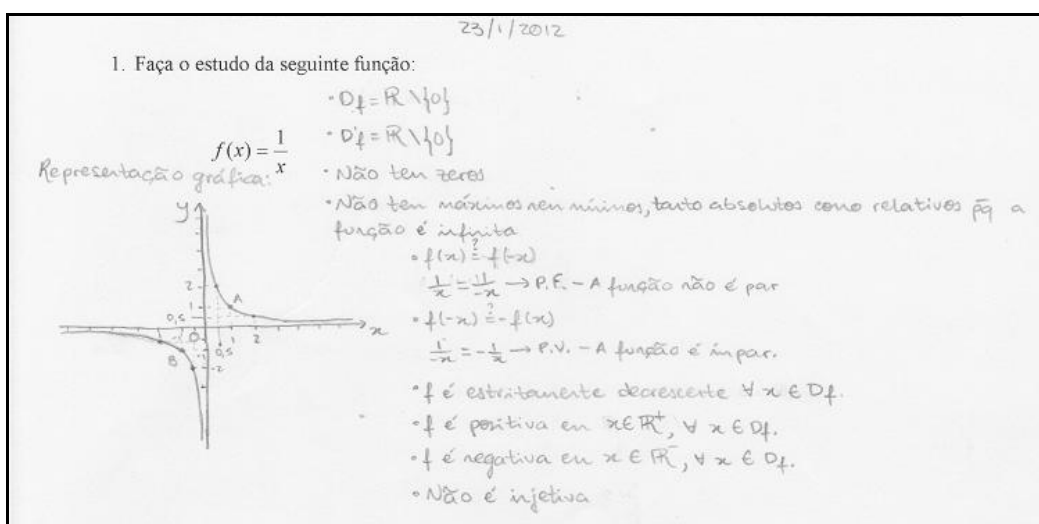 23/1/2012
1. Faça o estudo da seguinte função:
f(x) = 1/x
Representação gráfica:
y
2
A
1
0,5
x
-1
0
0,5
1
2
B
-1
-2
• Df = ℝ \ {0}
• D'f = ℝ \ {0}
• Não tem zeros
• Não tem máximos nem mínimos, tanto absolutos como relativos pq a
função é infinita
• f(x) ?= f(-x)
1/x = 1/-x → P.F. - A função não é par
• f(-x) ?= -f(x)
1/-x = -1/x → P.V. - A função é ímpar.
• f é estritamente decrescente ∀ x ∈ Df.
• f é positiva em x ∈ ℝ⁺, ∀ x ∈ Df.
• f é negativa em x ∈ ℝ⁻, ∀ x ∈ Df.
• Não é injetiva